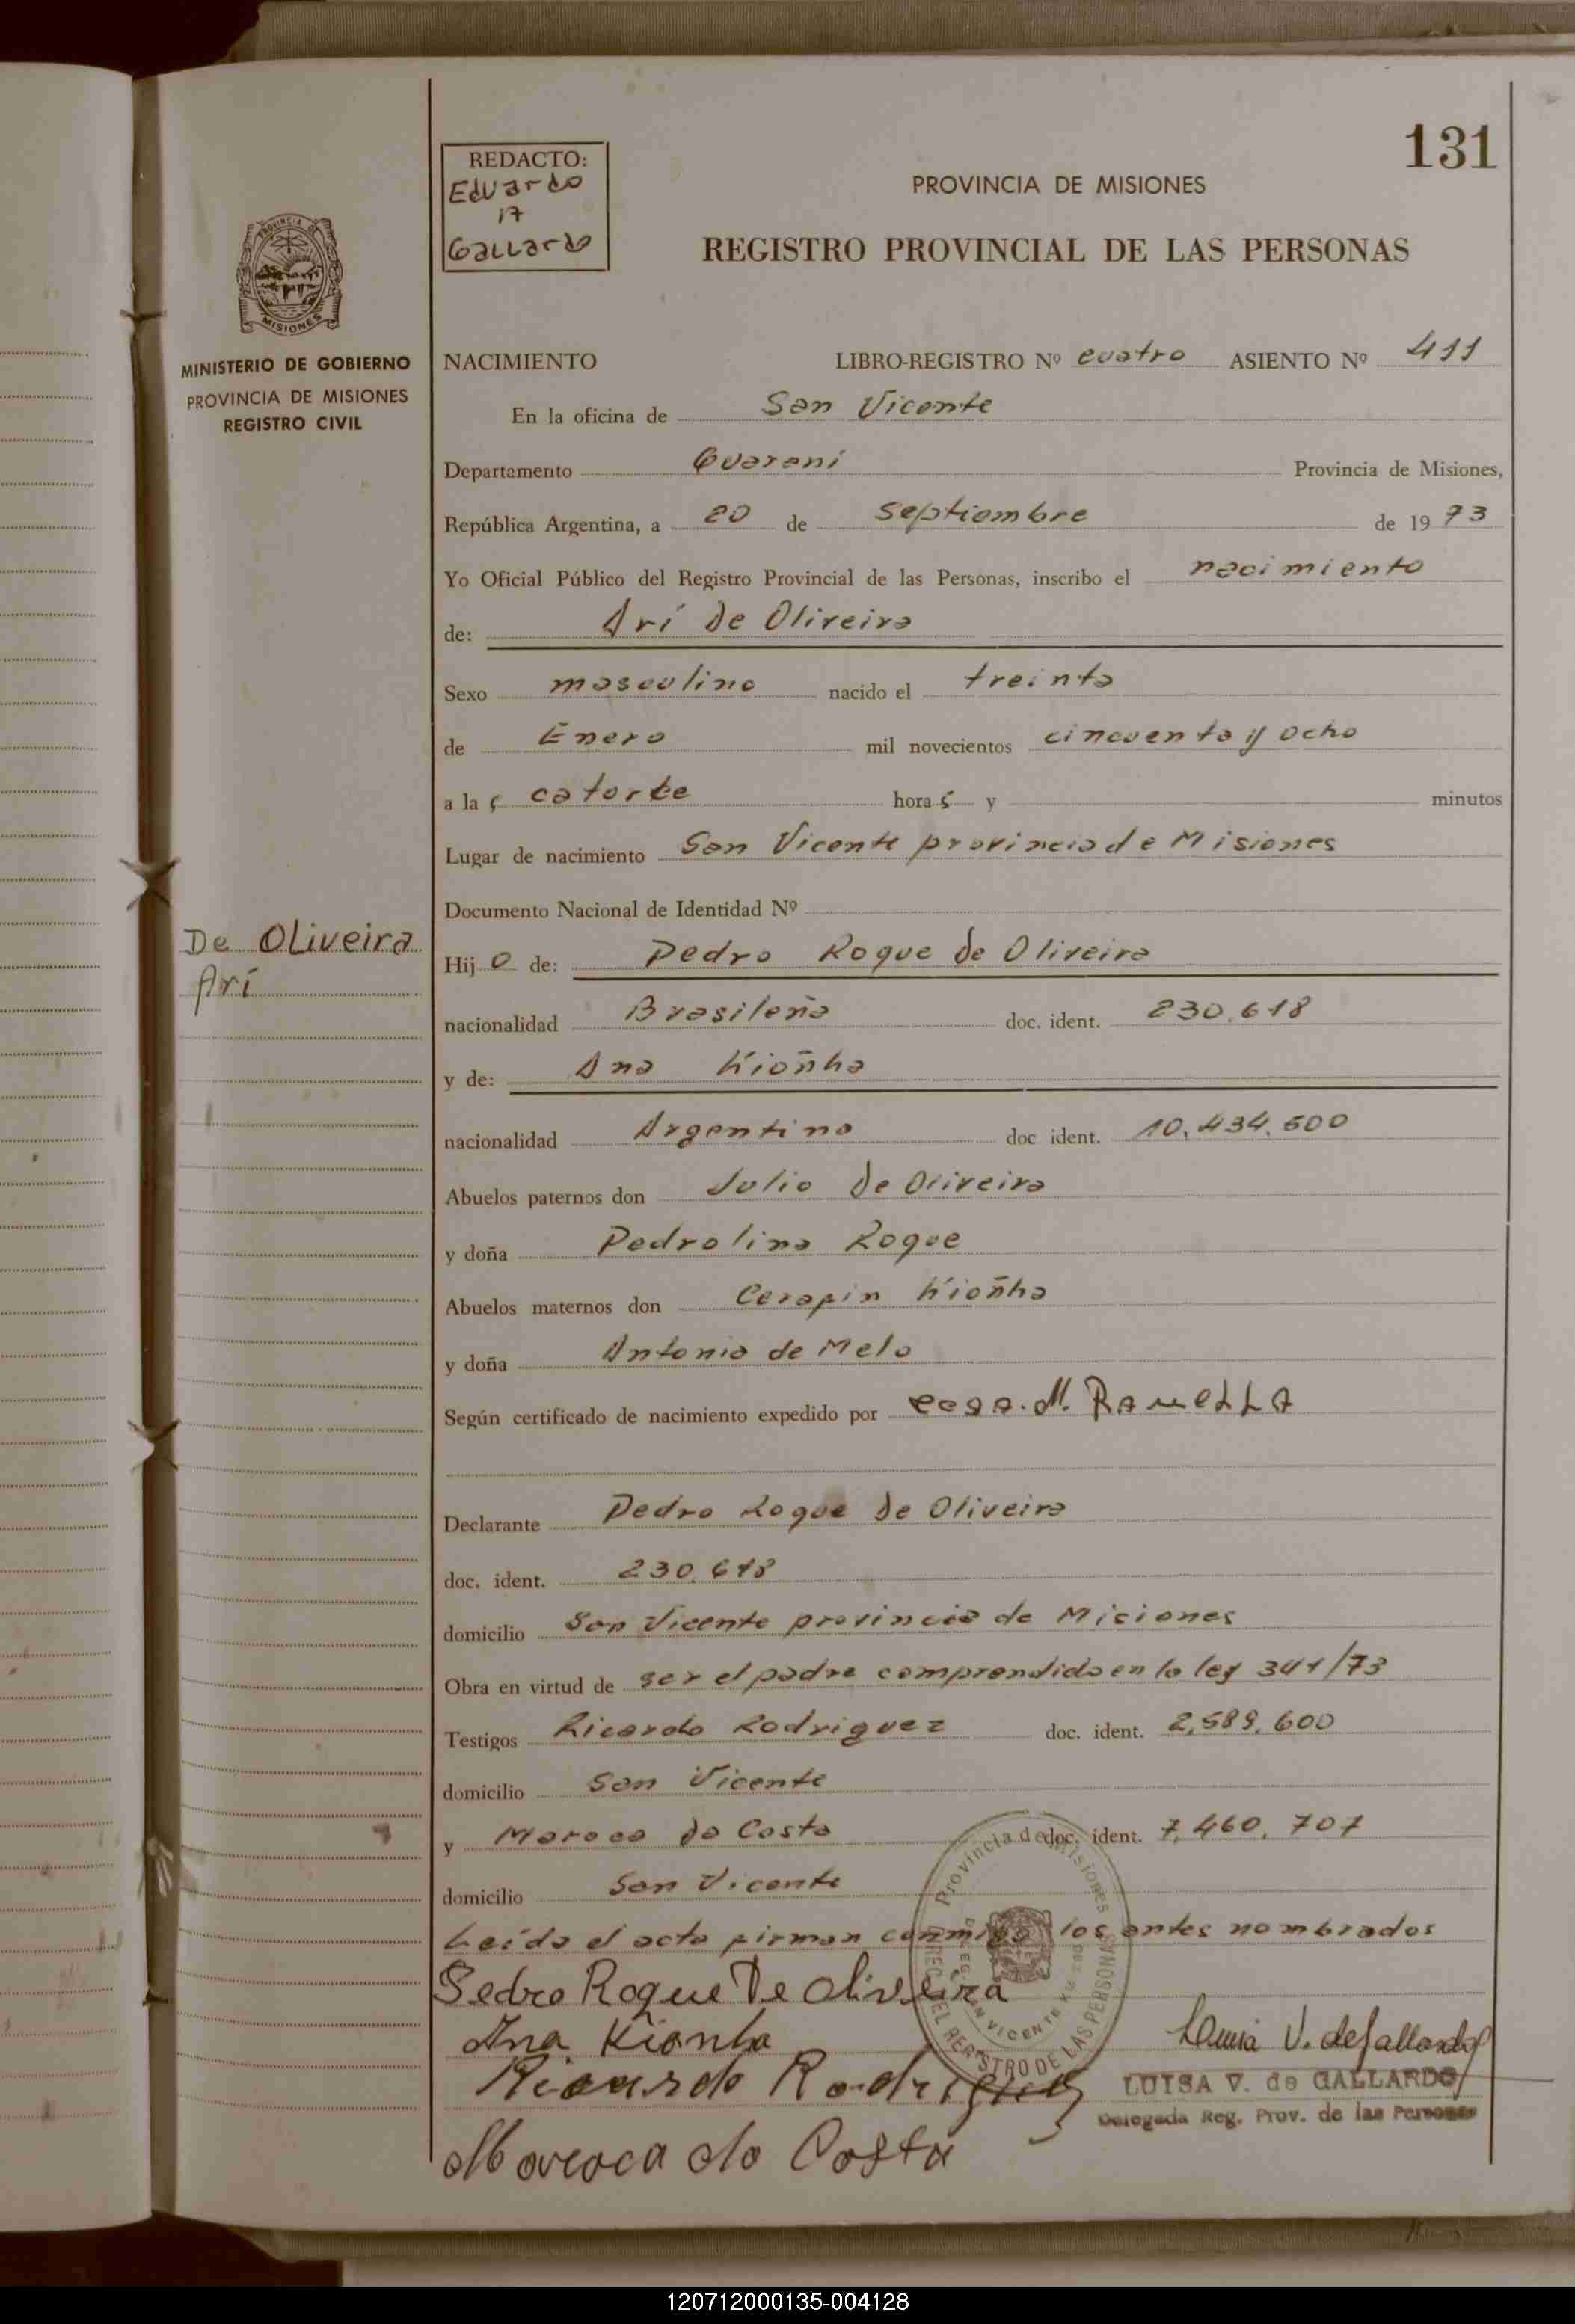 131
REDACTO:
Eduardo
A
Gallardo
PROVINCIA DE MISIONES
REGISTRO PROVINCIAL DE LAS PERSONAS
PROVINCIA DE
MISIONES
MINISTERIO DE GOBIERNO
PROVINCIA DE MISIONES
REGISTRO CIVIL
NACIMIENTO LIBRO-REGISTRO Nº cuatro ASIENTO Nº 411
En la oficina de San Vicente
Departamento Guarani Provincia de Misiones,
República Argentina, a 20 de septiembre de 19 73
Yo Oficial Público del Registro Provincial de las Personas, inscribo el nacimiento
de: Arí de Oliveira
Sexo masculino nacido el treinta
de Enero mil novecientos cincuenta y ocho
a la s catorce hora s y minutos
Lugar de nacimiento San Vicente provincia de Misiones
Documento Nacional de Identidad Nº
De Oliveira
Arí
Hij o de: Pedro Roque de Oliveira
nacionalidad Brasileña doc. ident. 230.618
y de: Ana Kioñha
nacionalidad Argentina doc ident. 10.434.600
Abuelos paternos don Julio de Oliveira
y doña Pedrolina Roque
Abuelos maternos don Cerapin Kioñha
y doña Antonia de Melo
Según certificado de nacimiento expedido por
Declarante Pedro Roque de Oliveira
doc. ident. 230.618
domicilio San Vicente provincia de Miciones
Obra en virtud de ser el padre comprendido en la ley 341/73
Testigos Ricardo Rodriguez doc. ident. 2,589,600
domicilio San Vicente
y Maroca do Costa doc. ident. 7,460,707
domicilio San Vicente
Leída el acta firman conmigo los antes nombrados
Pedro Roque De Oliveira
Ana Kionha
Ricardo Rodriguez
Maroca do Costa
Provincia de Misiones
REGISTRO DE LAS PERSONAS
Luisa V. de Gallardo
LUISA V. de GALLARDO
Delegada Reg. Prov. de las Personas
120712000135-004128